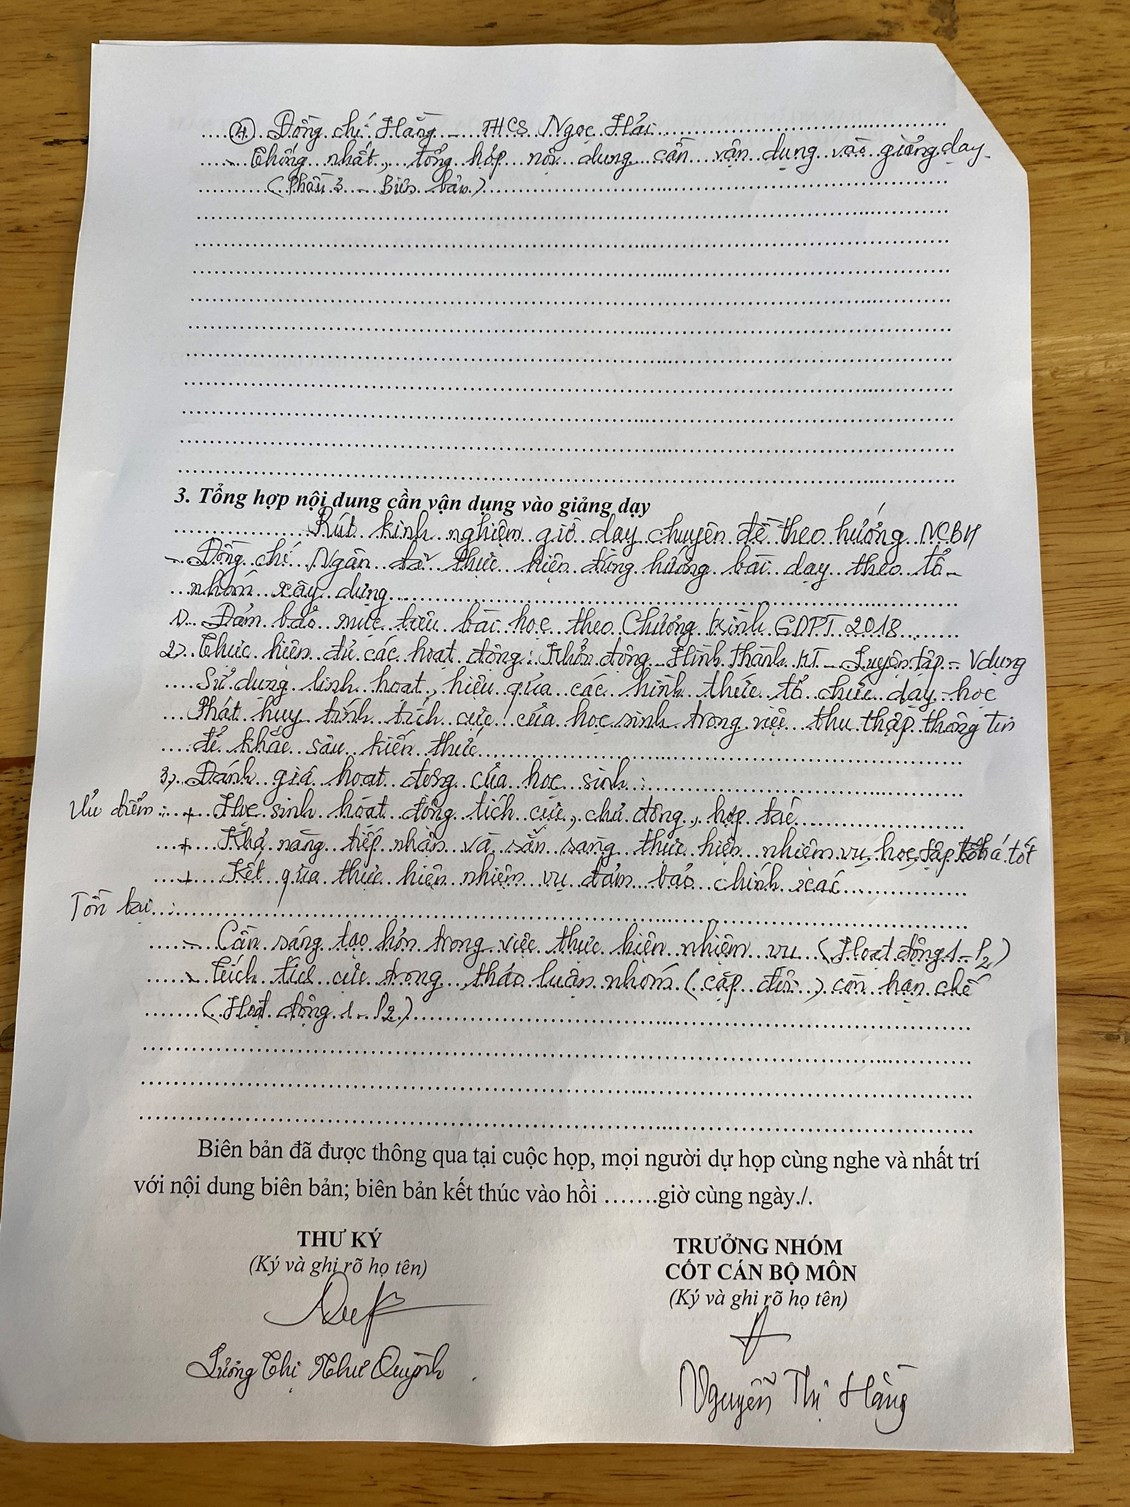 ④ Đồng chí: Hằng - THCS Ngọc Hải
- Thống nhất, tổng hợp nội dung cần vận dụng vào giảng dạy
(Phần 3 - Biên bản)
3. Tổng hợp nội dung cần vận dụng vào giảng dạy
Rút kinh nghiệm giờ dạy chuyên đề theo hướng NCBH
- Đồng chí Ngân đã thực hiện đúng hướng bài dạy theo tổ -
nhóm xây dựng
1) Đảm bảo mục tiêu bài học theo Chương trình GDPT 2018
2) Thực hiện đủ các hoạt động: Khởi động - Hình thành KT - Luyện tập - Vdụng
Sử dụng linh hoạt, hiệu quả các hình thức tổ chức dạy học
Phát huy tính tích cực của học sinh trong việc thu thập thông tin
để khắc sâu kiến thức
3) Đánh giá hoạt động của học sinh:
Ưu điểm: + Học sinh hoạt động tích cực, chủ động, hợp tác
+ Khả năng tiếp nhận và sẵn sàng thực hiện nhiệm vụ học tập khá tốt
+ Kết quả thực hiện nhiệm vụ đảm bảo chính xác
Tồn tại:
- Cần sáng tạo hơn trong việc thực hiện nhiệm vụ (Hoạt động 1 - P2)
- tích cực trong thảo luận nhóm (cặp đôi) còn hạn chế
(Hoạt động 1 - P2)
Biên bản đã được thông qua tại cuộc họp, mọi người dự họp cùng nghe và nhất trí
với nội dung biên bản; biên bản kết thúc vào hồi .......giờ cùng ngày./.
THƯ KÝ
(Ký và ghi rõ họ tên)
Lương Thị Như Quỳnh
TRƯỞNG NHÓM
CỐT CÁN BỘ MÔN
(Ký và ghi rõ họ tên)
Nguyễn Thị Hằng